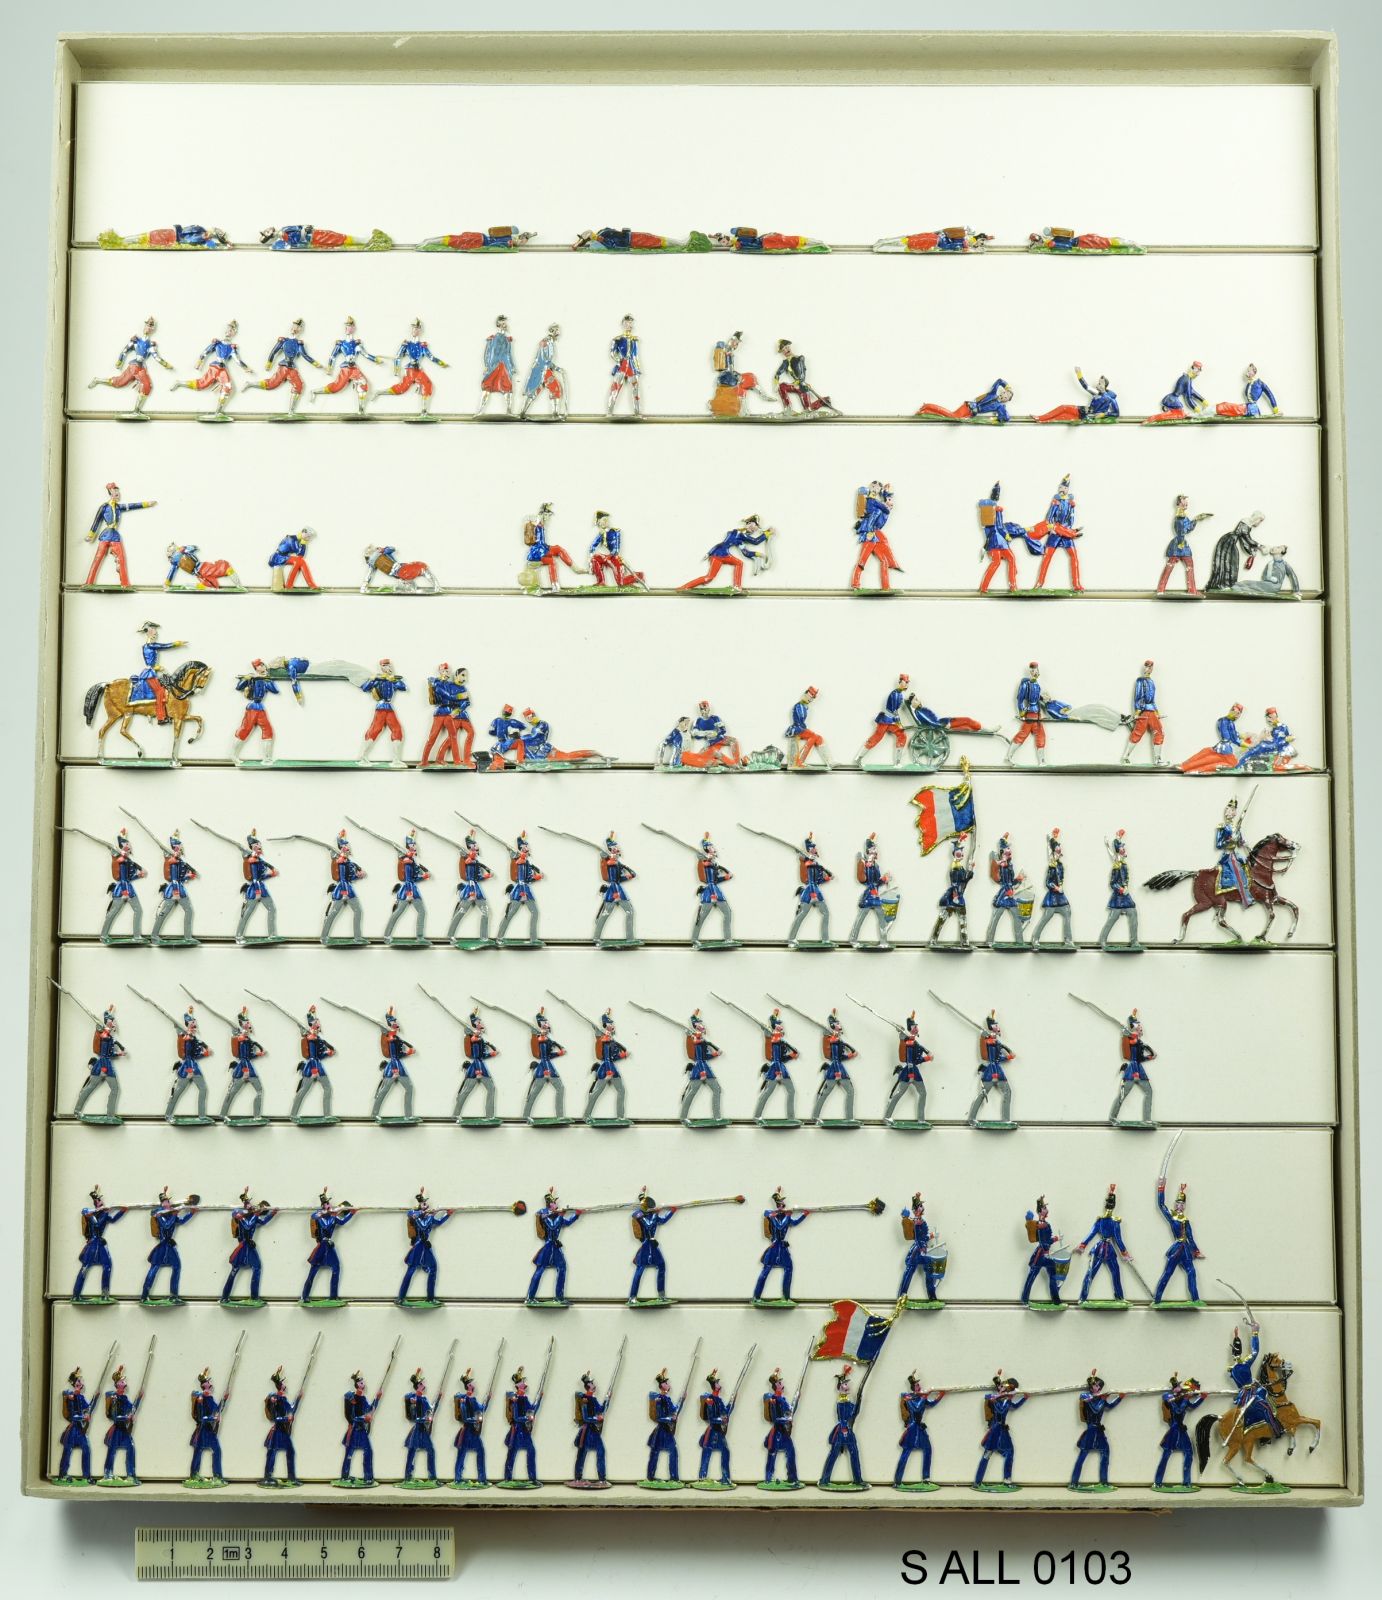 1 2 1m 3 4 5 6 7 8
S ALL 0103